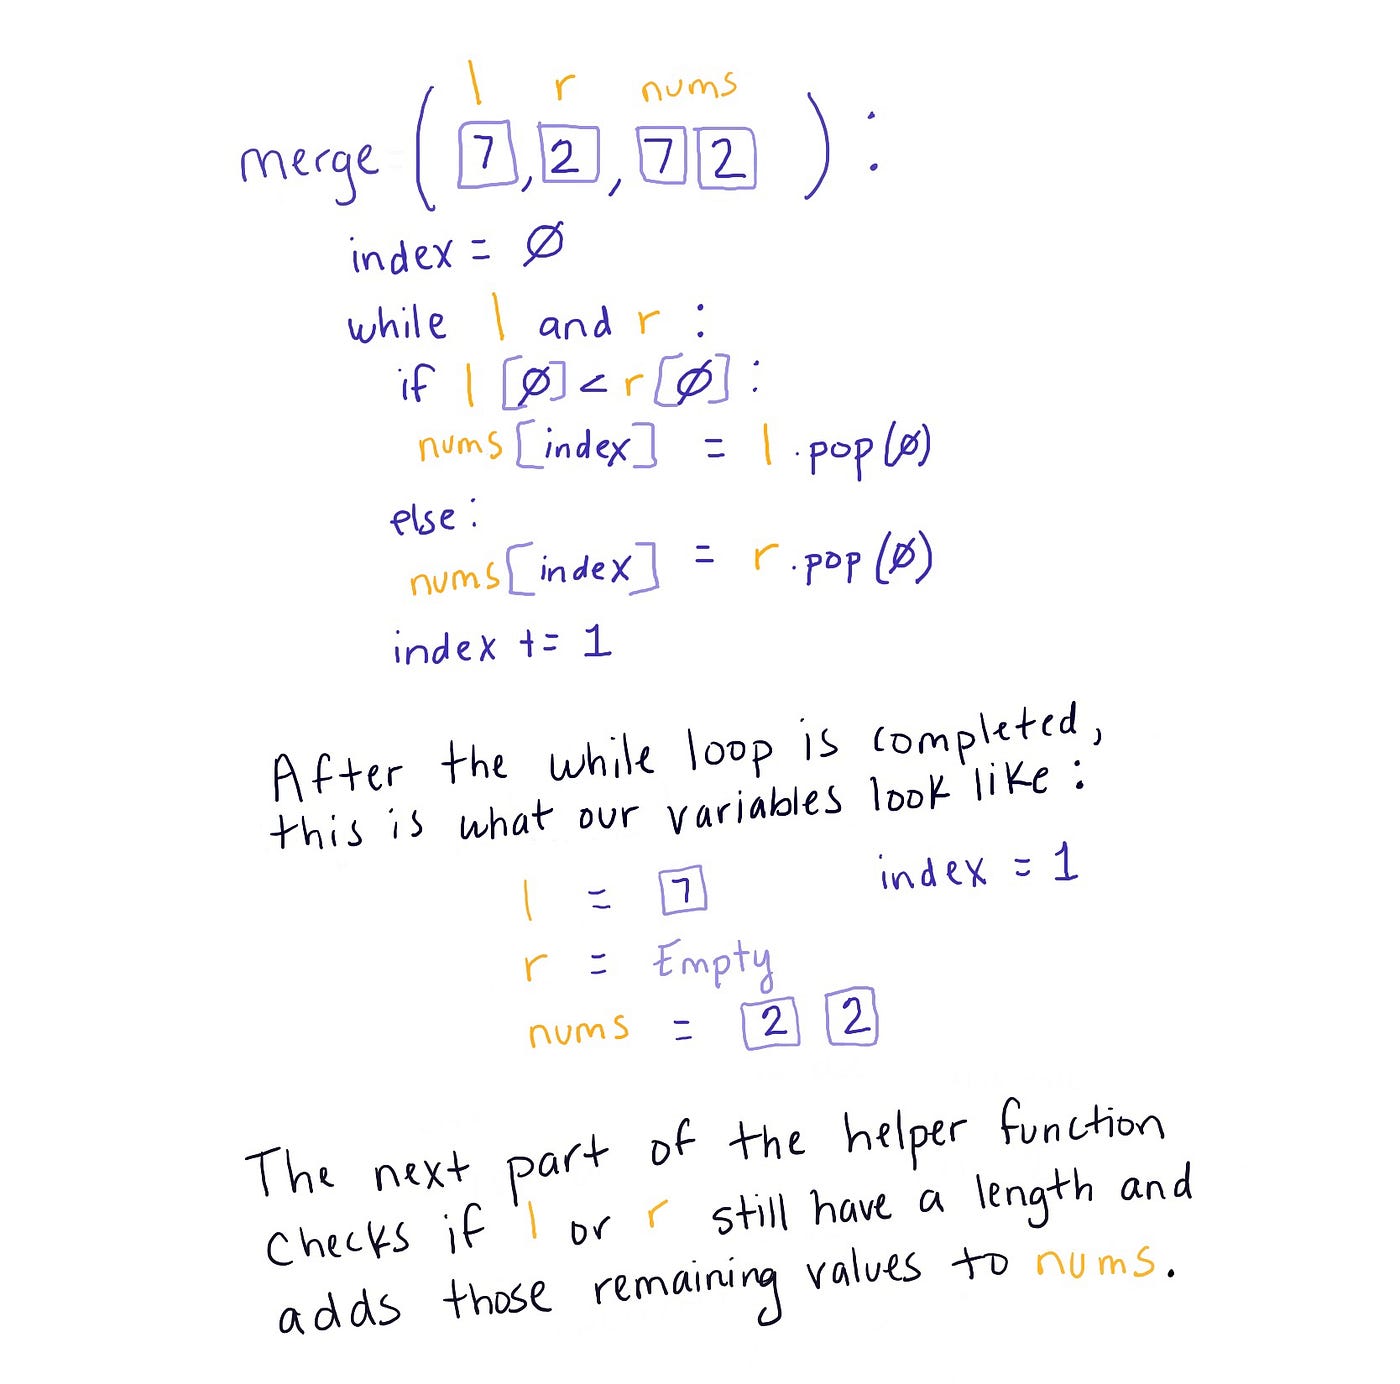 l r nums
merge ( 7 , 2 , 7 2 ) :
index = 0
while l and r :
if l [0] < r [0] :
nums [index] = l . pop (0)
else :
nums [index] = r . pop (0)
index += 1
After the while loop is completed,
this is what our variables look like :
l = 7 index = 1
r = Empty
nums = 2 2
The next part of the helper function
checks if l or r still have a length and
adds those remaining values to nums.